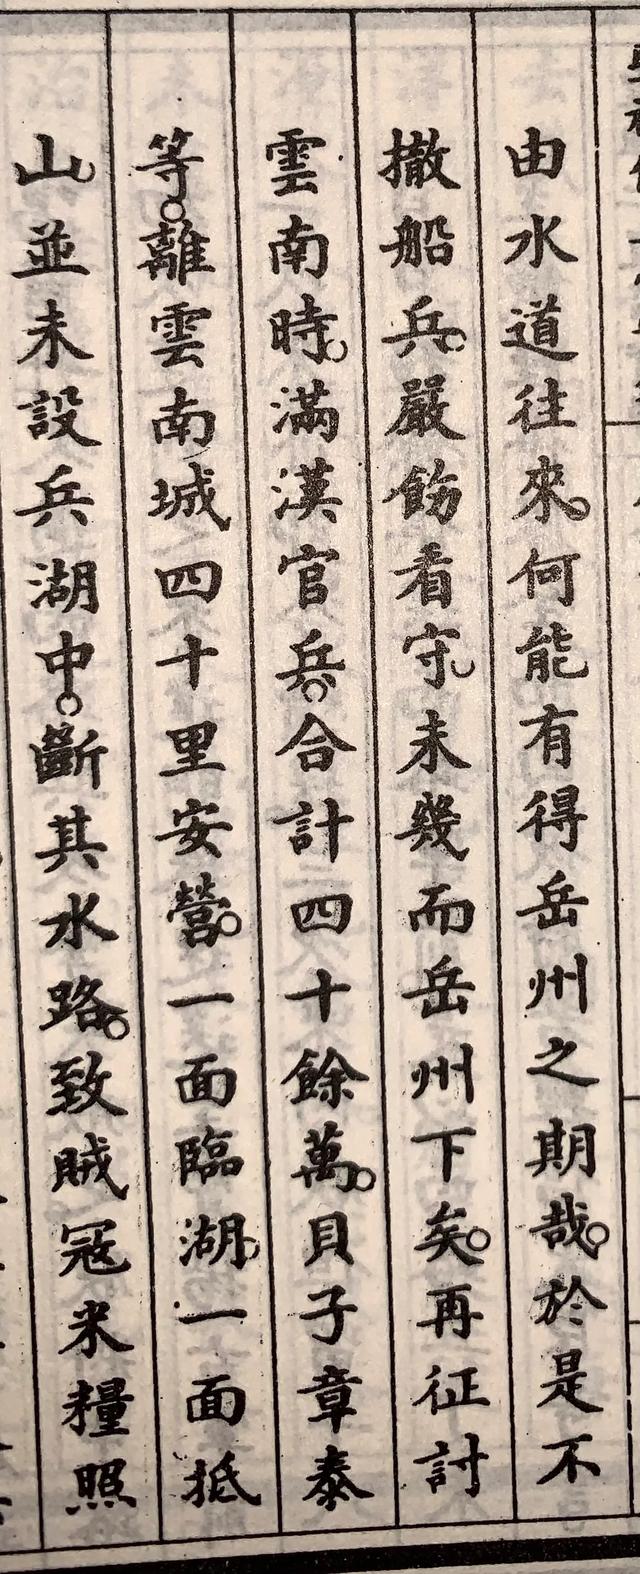 由水道往來。何能有得岳州之期哉。於是不
撤船兵。嚴飭看守。未幾而岳州下矣。再征討
雲南時。滿漢官兵。合計四十餘萬。貝子章泰
等。離雲南城四十里安營。一面臨湖。一面抵
山。並未設兵湖中。斷其水路。致賊寇米糧照